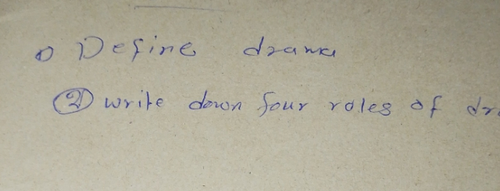 1) Define drama
② write down four roles of dra